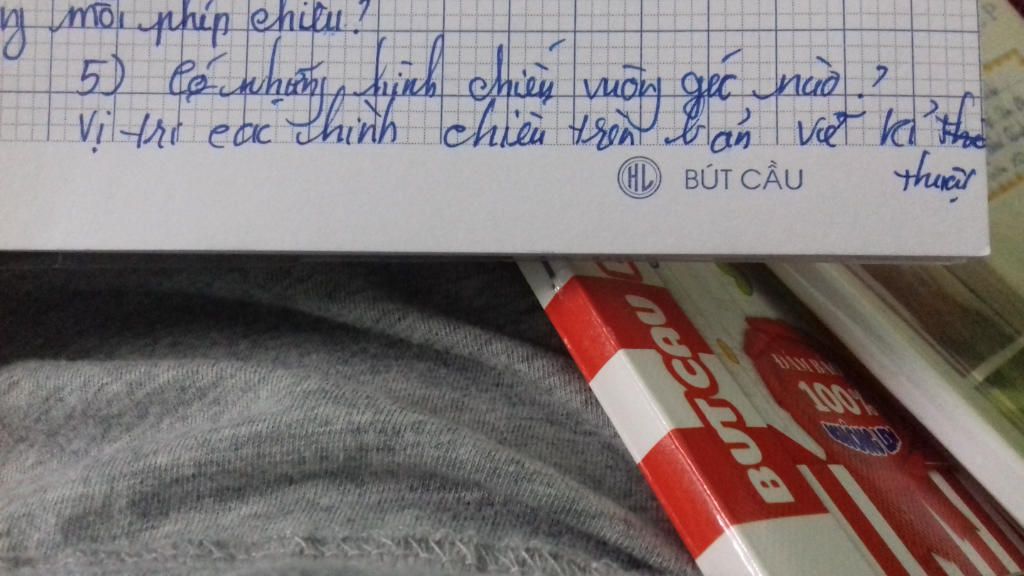 mỗi phép chiếu?
5) Có những hình chiếu vuông góc nào?
Vị trí các hình chiếu trên bản vẽ kĩ
thuật
HL BÚT CẦU
BUTCAU
100%